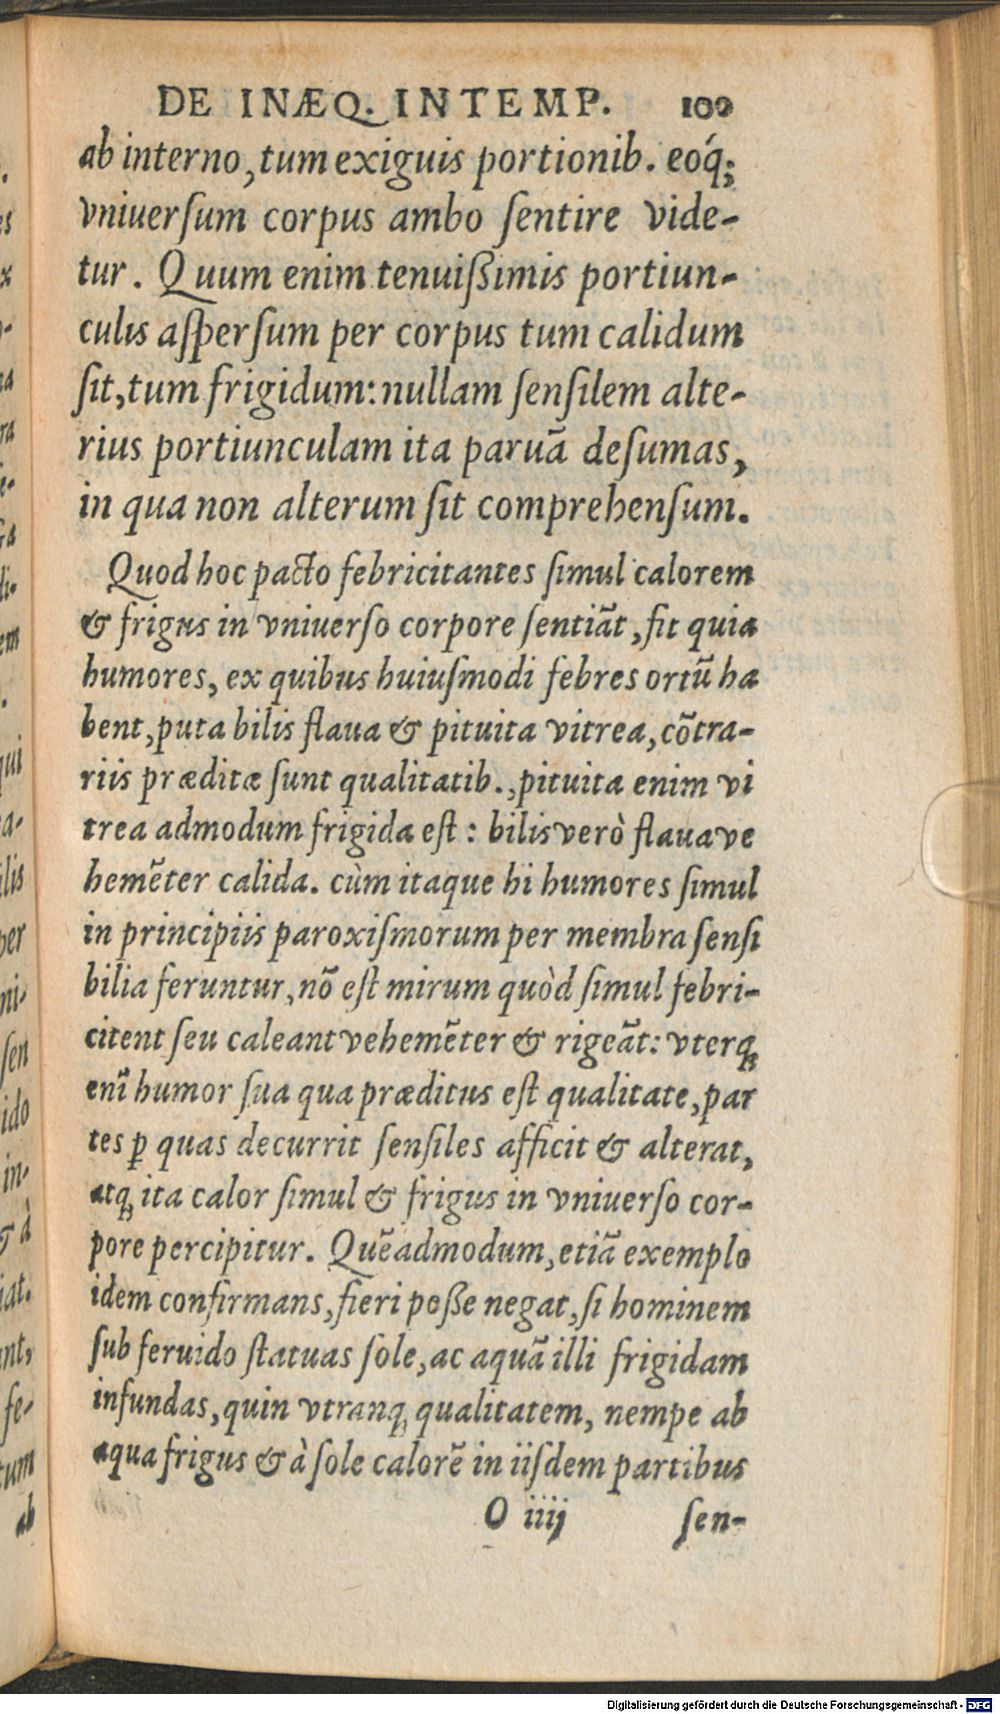 DE INÆQ. INTEMP. 100
ab interno, tum exiguis portionib. eoq́;
vniuerſum corpus ambo ſentire vide-
tur. Quum enim tenuißimis portiun-
culis aſperſum per corpus tum calidum
ſit, tum frigidum: nullam ſenſilem alte-
rius portiunculam ita paruã deſumas,
in qua non alterum ſit comprehenſum.
Quod hoc pacto febricitantes ſimul calorem
& frigus in vniuerſo corpore ſentiãt, fit quia
humores, ex quibus huiuſmodi febres ortũ ha
bent, puta bilis flaua & pituita vitrea, cõtra-
riis præditæ ſunt qualitatib., pituita enim vi
trea admodum frigida eſt: bilis verò flaua ve
hemẽter calida. cùm itaque hi humores ſimul
in principiis paroxiſmorum per membra ſenſi
bilia feruntur, nõ eſt mirum quòd ſimul febri-
citent ſeu caleant vehemẽter & rigeãt: vterqꝫ
enĩ humor ſua qua præditus eſt qualitate, par
tes ꝑ quas decurrit ſenſiles afficit & alterat,
atqꝫ ita calor ſimul & frigus in vniuerſo cor-
pore percipitur. Quẽadmodum, etiã exemplo
idem confirmans, fieri poße negat, ſi hominem
ſub feruido ſtatuas ſole, ac aquã illi frigidam
infundas, quin vtranqꝫ qualitatem, nempe ab
aqua frigus & à ſole calorẽ in iiſdem partibus
O iiij ſen-
Digitalisierung gefördert durch die Deutsche Forschungsgemeinschaft - DFG